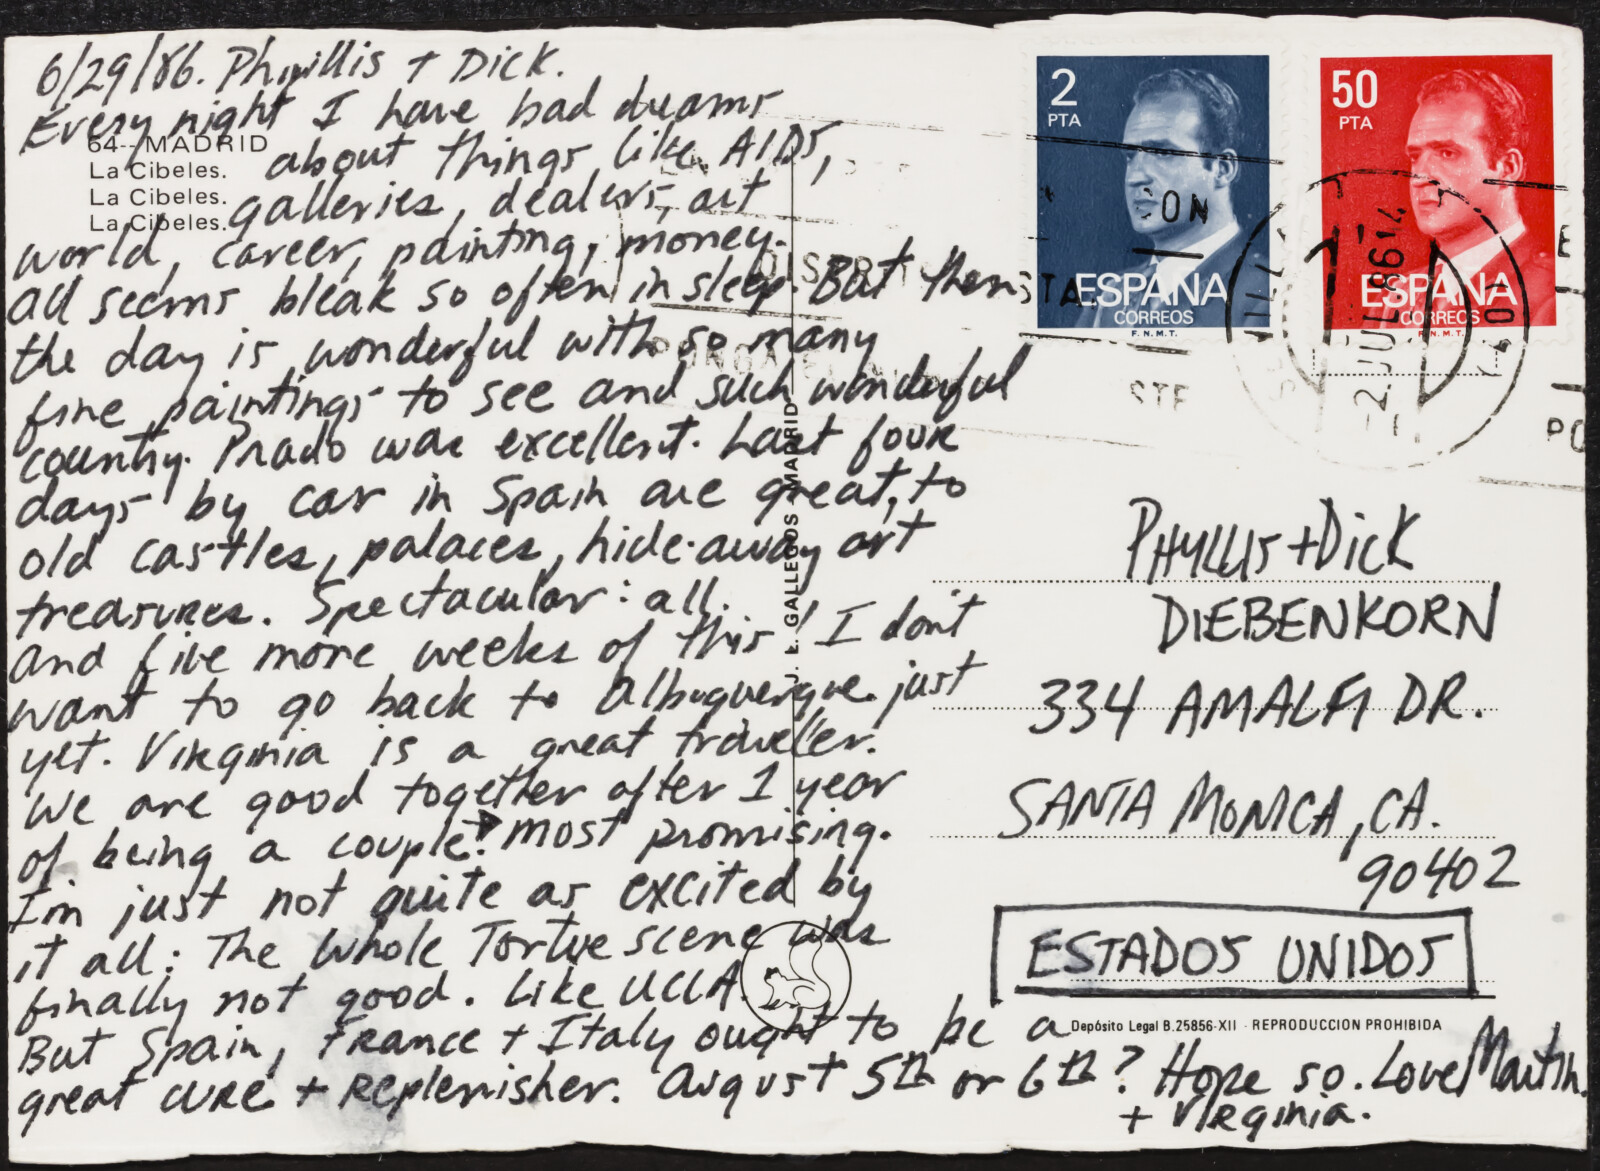 6/29/86. Phyillis + Dick.
Every night I have bad dreams
about things like AIDS,
galleries, dealers, art
world, career, painting, money.
all seems bleak so often in sleep. But then
the day is wonderful with so many
fine paintings to see and such wonderful
country. Prado was excellent. Last four
days by car in Spain are great, to
old castles, palaces, hide-away art
treasures. Spectacular: all.
and five more weeks of this! I don't
want to go back to Albuquerque just
yet. Virginia is a great traveller.
We are good together after 1 year
of being a couple. most promising.
I'm just not quite as excited by
it all: The whole Tortue scene was
finally not good. Like UCLA.
But Spain, France + Italy ought to be a
great cure + replenisher. August 5th or 6th? Hope so. Love Martin.
+ Virginia.
64-- MADRID
La Cibeles.
La Cibeles.
La Cibeles.
J. E. GALLEGOS - MADRID
2
PTA
ESPAÑA
CORREOS
F.N.M.T.
50
PTA
ESPAÑA
CORREOS
F.N.M.T.
-2 JUL 1986 14
PHYLLIS + DICK
DIEBENKORN
334 AMALFI DR.
SANTA MONICA, CA.
90402
ESTADOS UNIDOS
Depósito Legal B.25856-XII - REPRODUCCION PROHIBIDA